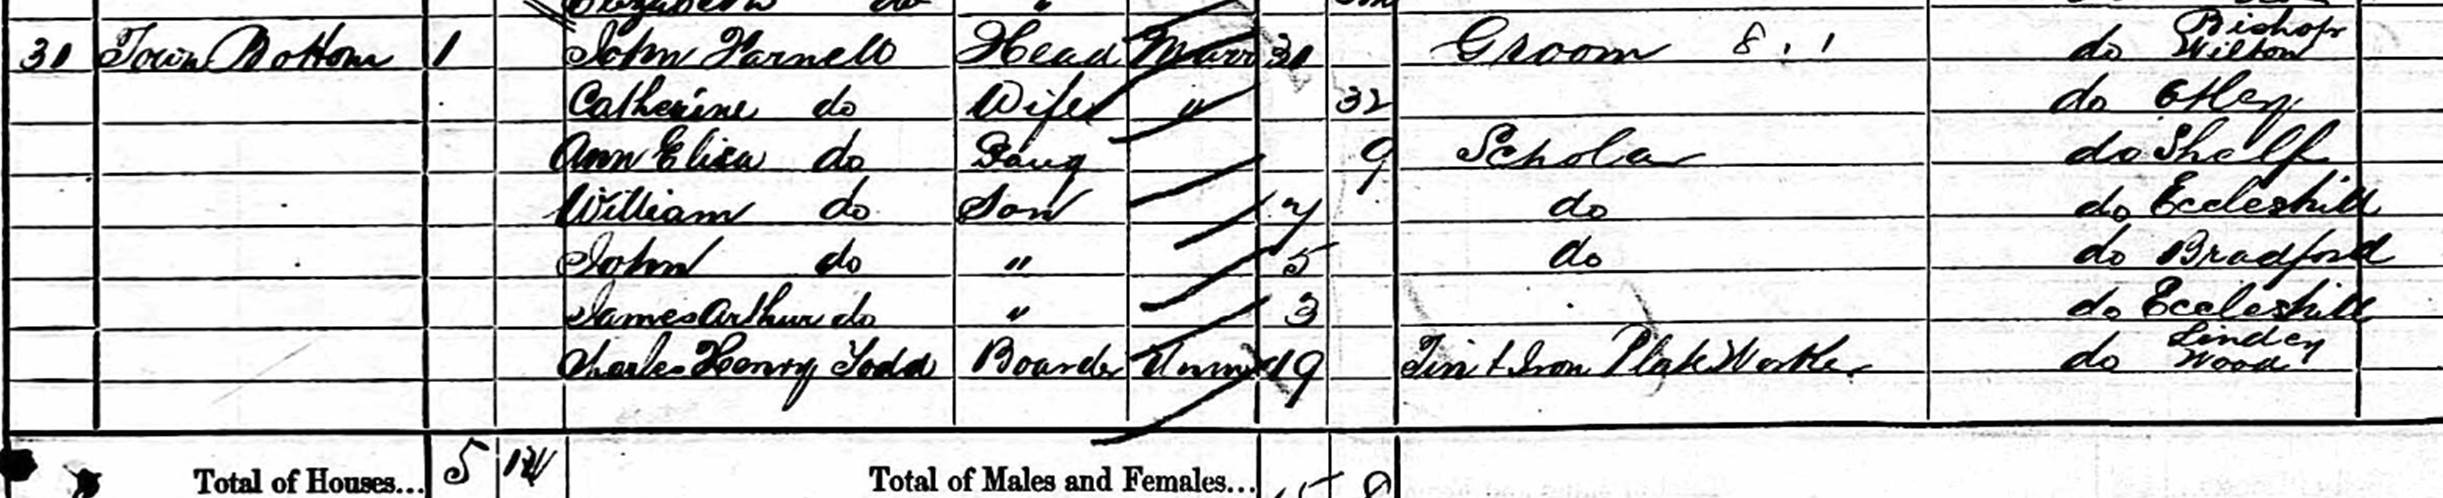 Elizabeth do "
31 Town Bottom 1 John Farnell Head Marr 31 Groom 8 . 1 do Bishop Wilton
Catherine do Wife " 32 do Otley
Ann Eliza do Daug 9 Scholar do Shelf
William do Son 7 do do Eccleshill
John do " 5 do do Bradford
James Arthur do " 3 do Eccleshill
Charles Henry Todd Boarder Unmar 19 Tin & Iron Plate Worker do Lindley Wood
Total of Houses... 5 Total of Males and Females... 15 8